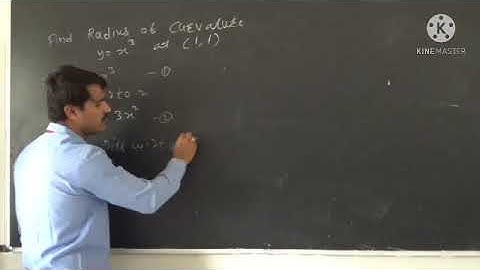 Find Radius of Curvature
y = x³ at (1,1)
3 — ①
to x
3x² — ②
Diff w.r.to
KINEMASTER